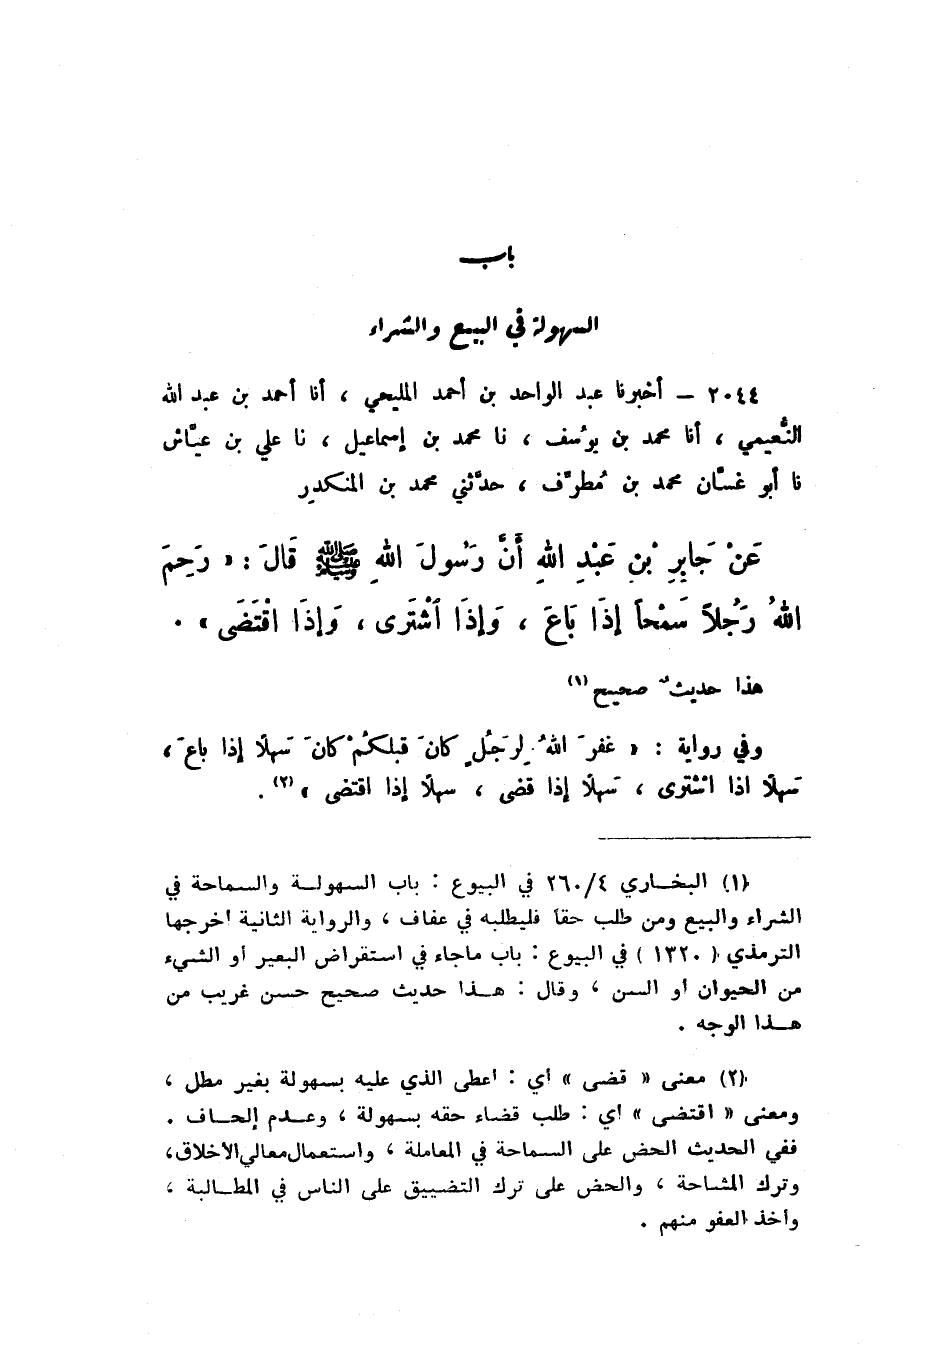 باب
السهولة في البيع والشراء
٢٠٤٤ – أخبرنا عبد الواحد بن أحمد المليحي ، أنا أحمد بن عبد الله
النُّعيمي ، أنا محمد بن يوسُف ، نا محمد بن إسماعيل ، نا علي بن عيَّاش
نا أبو غسَّان محمد بن مُطرِّف ، حدَّثني محمد بن المنكدر
عَنْ جَابِرِ بْنِ عَبْدِ اللهِ أَنَّ رَسُولَ اللهِ ﷺ قَالَ : « رَحِمَ
اللهُ رَجُلاً سَمْحاً إذَا بَاعَ ، وَإذَا ٱشْتَرى ، وَإذَا اقْتَضَى » .
هذا حديثٌ صحيح (١)
وفي رواية : « غفرَ اللهُ لِرَجُلٍ كانَ قبلكمْ كانَ سَهلًا إذا باعَ ،
سَهلًا اذا اشترى ، سَهلًا إذا قضى ، سهلًا إذا اقتضى » (٢) .
(١) البخاري ٢٦٠/٤ في البيوع : باب السهولة والسماحة في
الشراء والبيع ومن طلب حقا فليطلبه في عفاف ، والرواية الثانية أخرجها
الترمذي ( ١٣٢٠ ) في البيوع : باب ماجاء في استقراض البعير أو الشيء
من الحيوان أو السن ، وقال : هذا حديث صحيح حسن غريب من
هذا الوجه .
(٢) معنى « قضى » أي : أعطى الذي عليه بسهولة بغير مطل ،
ومعنى « اقتضى » أي : طلب قضاء حقه بسهولة ، وعدم إلحاف .
ففي الحديث الحض على السماحة في المعاملة ، واستعمال معالي الأخلاق،
وترك المشاحة ، والحض على ترك التضييق على الناس في المطالبة ،
وأخذ العفو منهم .